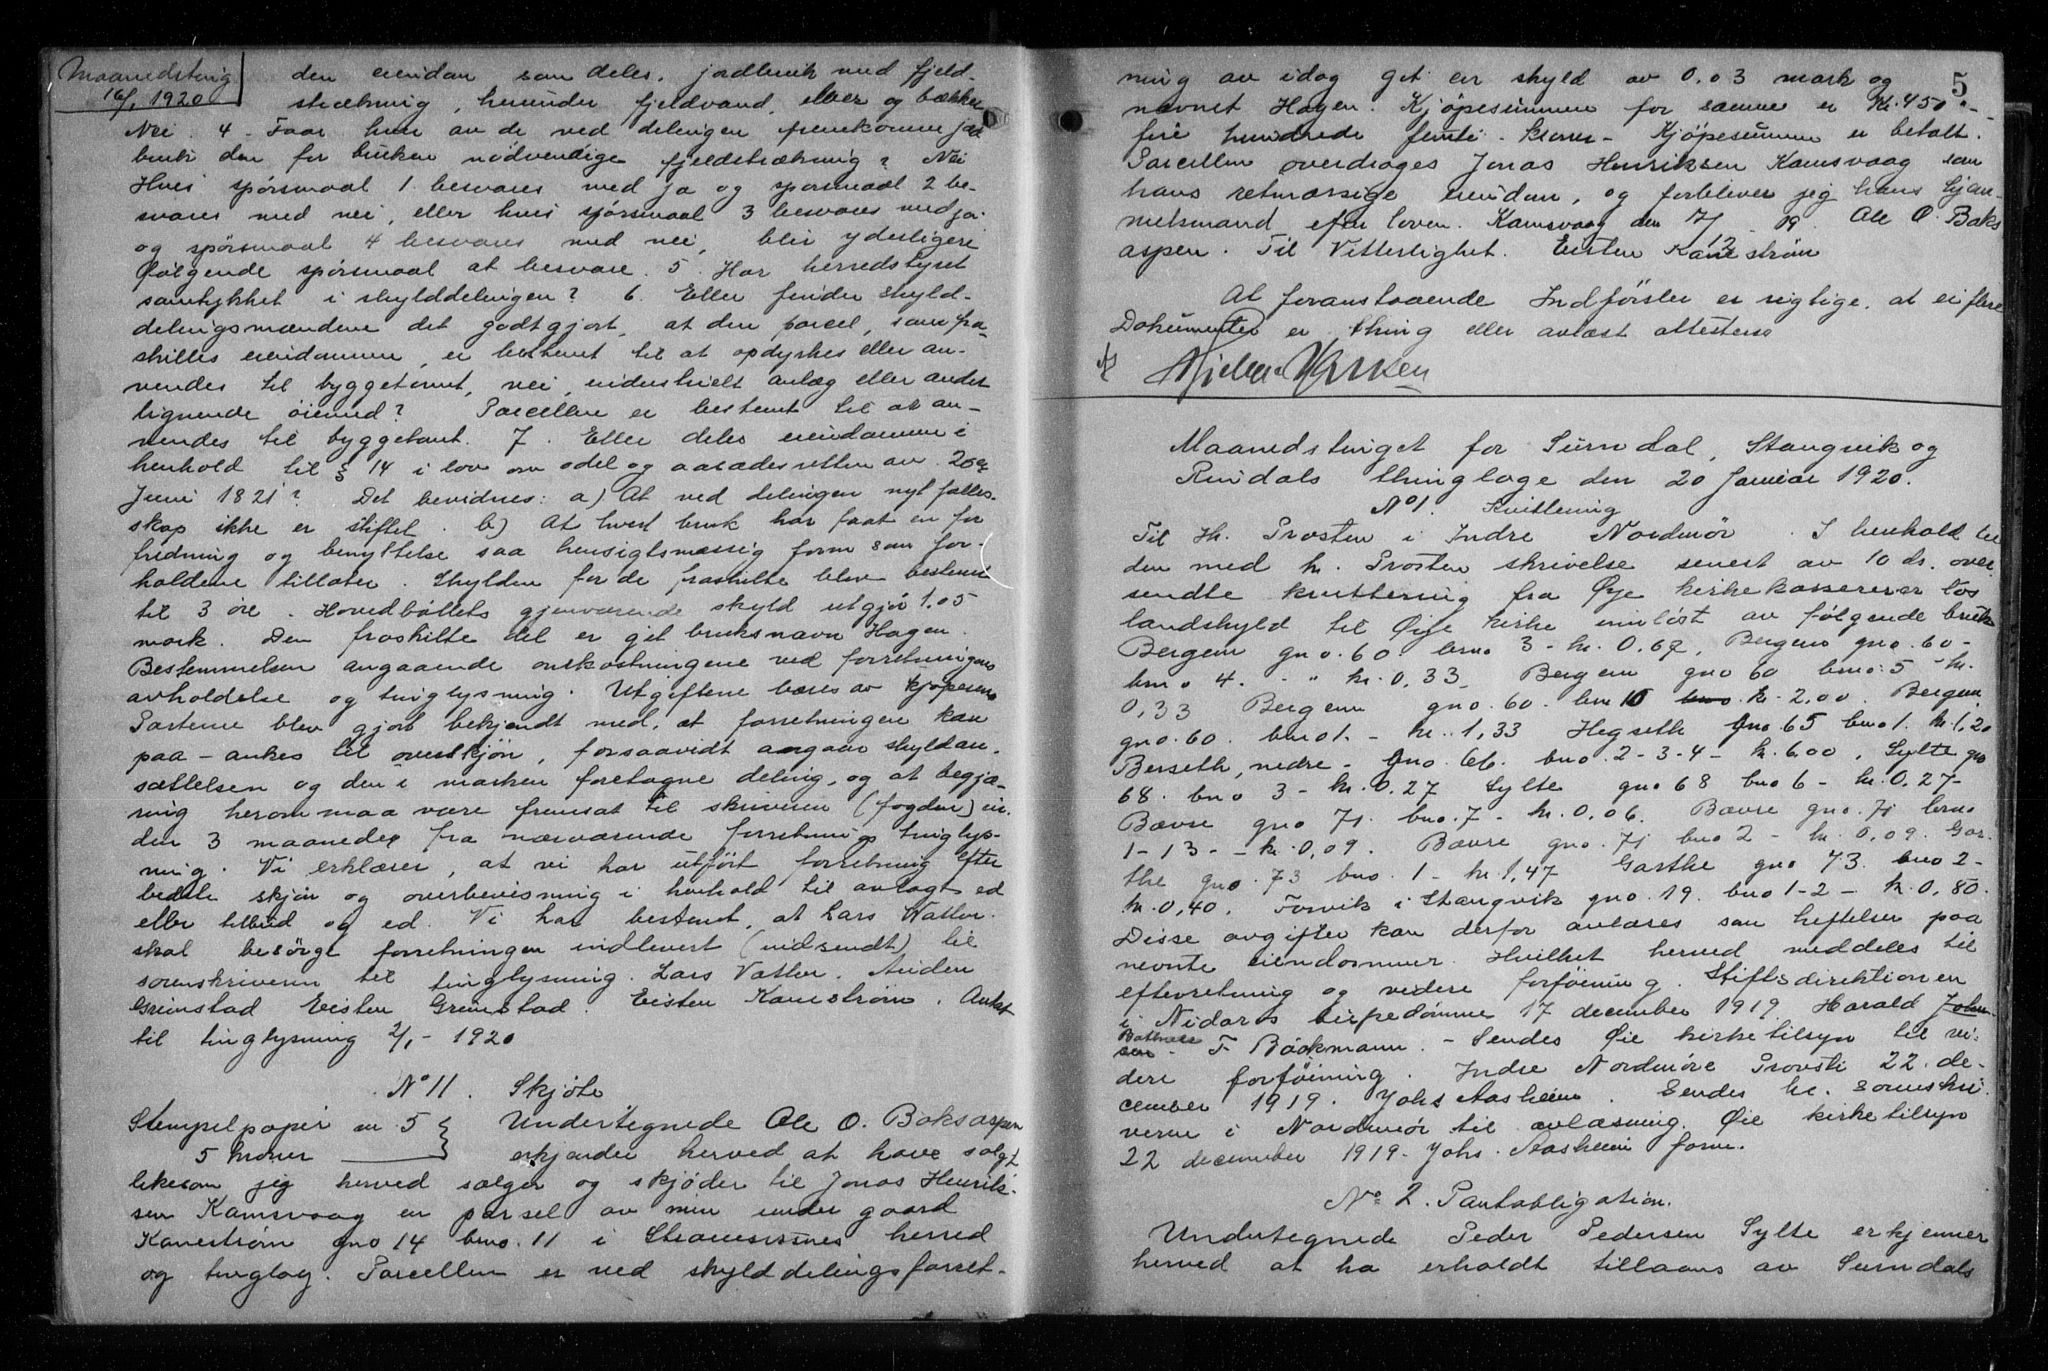 Maanedsting
16/1 1920
den eiendom som deles, jordbruk med fjeld-
strækning, herunder fjeldvand, elver og bækker
Nei. 4. Faar hver av de ved delingen fremkomne jord
bruk den for bruken nødvendige fjeldstrækning? Nei
Hvis spørsmaal 1 besvares med ja og spørsmaal 2 be-
svares med nei, eller hvis spørsmaal 3 besvares med ja
og spørsmaal 4 besvares med nei, blir yderligere
følgende spørsmaal at besvare. 5. Har herredstyret
samtykket i skylddelingen? 6. Eller finder skyld-
delingsmændene det godtgjort, at den parcel, som fra-
skilles eiendommen, er bestemt til at opdyrkes eller an-
vendes til byggetomt, vei, industrielt anlæg eller andet
lignende øiemed? Parcellen er bestemt til at an-
vendes til byggetomt. 7. Eller deles eiendommen i
henhold til § 14 i lov om odel og aasædesretten av 26de
Juni 1821? Det bevidnes: a) At ved delingen nyt fælles-
skap ikke er stiftet. b) At hvert bruk har faat en for
fredning og benyttelse saa hensigtsmæssig form som for-
holdene tillater. Skylden for de fraskilte blev bestemt
til 3 øre. Hovedbøllets gjenværende skyld utgjør 1.05
mark. Den fraskilte del er git bruksnavn Hagen.
Bestemmelsen angaaende omkostningene ved forretningens
avholdelse og tinglysning. Utgiftene bæres av kjøperen
Parterne blev gjort bekjendt med, at forretningen kan
paa-ankes til overskjøn, forsaavidt angaar skyldan-
sættelsen og den i marken foretagne deling, og at begjæ-
ring herom maa være fremsat til skriveren (fogden) in-
den 3 maaneder fra nærværende forretnings tinglys-
ning. Vi erklærer, at vi har utført forretning efter
bedste skjøn og overbevisning i henhold til avlagt ed
eller tilbud og ed. Vi har bestemt, at Lars Vatten.
skal besørge forretningen indlevert (indsendt) til
sorenskriveren til tinglysning. Lars Vatten. Anden
Grimstad Eisten Grimstad. Eisten Kanestrøm. Ankst
til tinglysning 2/1 - 1920
No 11. Skjøte
Stempelpapir m 5 } Undertegnede Ole O. Boksaspen
5 kroner } erkjender herved at have solgt
likesom jeg herved sælger og skjøder til Jonas Henrik-
sen Kamsvaag en parsel av min under gaard
Kanestrøm gno 14 bno. 11 i Strømsnes herred
og tinglag. Parcellen er ved skylddelingsforret-
5
ning av idag git en skyld av 0.03 mark og
nævnet Hagen. Kjøpesummen for samme er kr. 450.-
fire hundrede femti - kroner - Kjøpesummen er betalt.
Parcellen overdrages Jonas Henriksen Kamsvaag som
hans retmæssige eiendom, og forblever jeg hans hjem-
melsmand efter loven. Kamsvaag den 7/12 19. Ole O. Boks
aspen. Til Vitterlighet. Eisten Kanestrøm
At foranstaaende Indførsler er rigtige, at ei flere
Dokumenter er thing eller avlæst attesteres
Maanedstinget for Surndal, Stangvik og
Rindals thinglage den 20 Januar 1920.
No 1. Kvittering
Til Hr. Prosten i Indre Nordmør. I henhold til
den med hr. Prosten skrivelse senest av 10 ds. over
sendte kvittering fra Øye kirkekasserer er løs
landskyld til Øye kirke innløst av følgende bruk
Bergem gno. 60 bno 3 - kr. 0.67, Bergem gno. 60 -
bno 4. - " kr. 0,33 - Bergem gno 60 bno. 5 - kr.
0,33 Bergem gno. 60. bno 10 kr. 2,00. Bergem
gno. 60. bno 1. - kr. 1,33 Hegseth gno. 65 bno 1. kr. 1,20
Berseth, nedre - gno. 66. bno. 2-3-4 - kr. 6.00, Sylte gno
68. bno 3 - kr. 0.27 Sylte gno 68 bno 6 - kr. 0,27 -
Bævre gno 71. bno. 7 - kr. 0,06. Bævre gno. 71 bno
1-13 - - kr. 0,09. Bævre gno. 71 bno 2 - kr. 0,09. Gar-
the gno. 73 bno. 1 - kr. 1,47 Garthe gno 73. bno 2 -
kr. 0,40. Torvik i Stangvik gno. 19. bno 1-2 - kr. 0,80.
Disse avgifter kan derfor avlæses som heftelser paa
nevnte eiendommer. Hvilket herved meddeles til
efterretning og videre forføining. Stiftsdirektionen
i Nidaros bispedømme 17 december 1919. Harald Johan
Bothner
sen - F. Bøckmann. - Sendes Øie kirketilsyn til vi-
dere forføining. Indre Nordmøre Provsti 22. de-
cember 1919. Johs Aasheim. Sendes hr. sorenskri
veren i Nordmør til avlæsning. Øie kirketilsyn
22 december 1919. Johs. Aasheim form.
No 2. Pantobligation.
Undertegnede Peder Pedersen Sylte erkjenner
herved at ha erholdt tillaans av Surndals